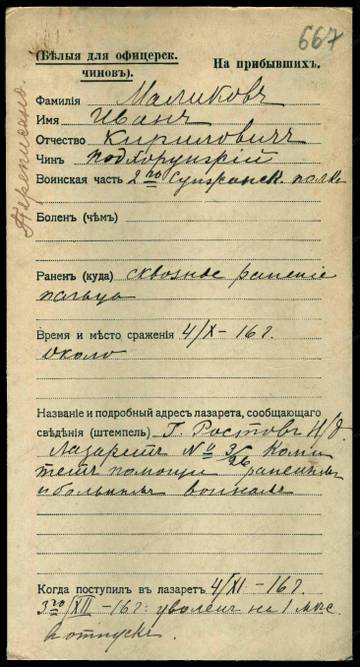 667
(Бѣлыя для офицерск. чиновъ).
На прибывшихъ.
Переписано.
Фамилія Маликовъ
Имя Иванъ
Отчество Кириловичъ
Чинъ подхорунжій
Воинская часть 2го Сунженск. полка
Боленъ (чѣмъ)
Раненъ (куда) сквозное раненіе
пальца
Время и мѣсто сраженія 4/X – 16 г.
Около
Названіе и подробный адресъ лазарета, сообщающаго
свѣдѣнія (штемпель) Г. Ростовъ Н/Д.
Лазаретъ № 3/26 Коми
тетъ помощи раненымъ
и больнымъ воинамъ
Когда поступилъ въ лазаретъ 4/XI – 16 г.
3го/XII – 16 г. уволенъ на 1 мѣс.
в отпускъ.